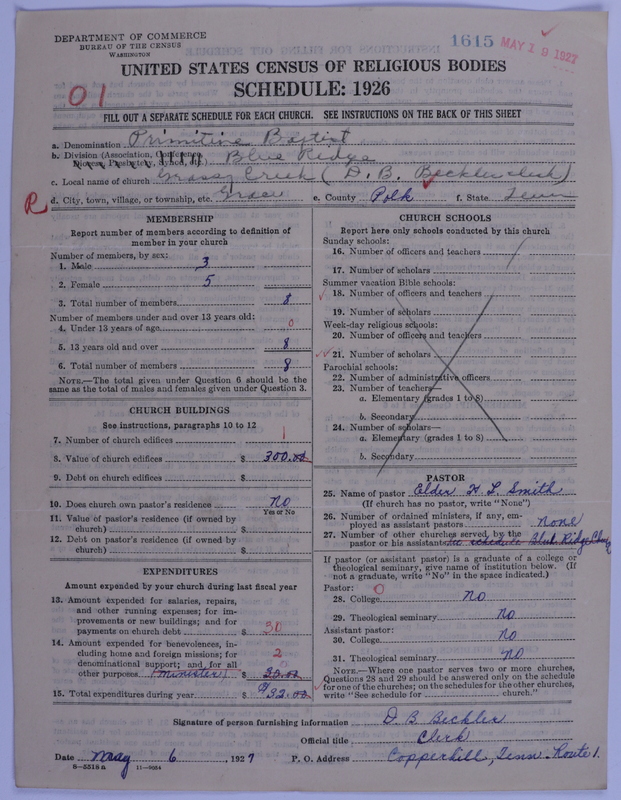 DEPARTMENT OF COMMERCE
BUREAU OF THE CENSUS
WASHINGTON
1615 MAY 19 1927
UNITED STATES CENSUS OF RELIGIOUS BODIES
SCHEDULE: 1926
01
FILL OUT A SEPARATE SCHEDULE FOR EACH CHURCH. SEE INSTRUCTIONS ON THE BACK OF THIS SHEET
a. Denomination Primitive Baptist
b. Division (Association, Conference, Diocese, Presbytery, Synod, etc.) Blue Ridge
c. Local name of church Grassy Creek (D. B. Beckler clerk)
R d. City, town, village, or township, etc. e. County Polk f. State Tenn
MEMBERSHIP
Report number of members according to definition of
member in your church
Number of members, by sex:
1. Male 3
2. Female 5
3. Total number of members 8
Number of members under and over 13 years old:
4. Under 13 years of age 0
5. 13 years old and over 8
6. Total number of members 8
NOTE.—The total given under Question 6 should be the
same as the total of males and females given under Question 3.
CHURCH BUILDINGS
See instructions, paragraphs 10 to 12
7. Number of church edifices 1
8. Value of church edifices $ 300.00
9. Debt on church edifices $
10. Does church own pastor's residence No
Yes or No
11. Value of pastor's residence (if owned by
church) $
12. Debt on pastor's residence (if owned by
church) $
EXPENDITURES
Amount expended by your church during last fiscal year
13. Amount expended for salaries, repairs,
and other running expenses; for im-
provements or new buildings; and for
payments on church debt $ 30
14. Amount expended for benevolences, in-
cluding home and foreign missions; for 2
denominational support; and for all
other purposes. (minister) $ 30.00
15. Total expenditures during year $ 32.00
CHURCH SCHOOLS
Report here only schools conducted by this church
Sunday schools:
16. Number of officers and teachers
17. Number of scholars
Summer vacation Bible schools:
18. Number of officers and teachers
19. Number of scholars
Week-day religious schools:
20. Number of officers and teachers
21. Number of scholars
Parochial schools:
22. Number of administrative officers
23. Number of teachers—
a. Elementary (grades 1 to 8)
b. Secondary
24. Number of scholars—
a. Elementary (grades 1 to 8)
b. Secondary
PASTOR
25. Name of pastor Elder H L Smith
(If church has no pastor, write "None")
26. Number of ordained ministers, if any, em-
ployed as assistant pastors none
27. Number of other churches served by the
pastor or his assistants see schedule Blue Ridge
If pastor (or assistant pastor) is a graduate of a college or
theological seminary, give name of institution below. (If
not a graduate, write "No" in the space indicated.)
Pastor: 0
28. College No
29. Theological seminary No
Assistant pastor:
30. College No
31. Theological seminary No
NOTE.—Where one pastor serves two or more churches,
Questions 28 and 29 should be answered only on the schedule
for one of the churches; on the schedules for the other churches,
write "See schedule for church."
Signature of person furnishing information D. B. Beckler
Official title Clerk
Date May 6, 1927 P. O. Address Copperhill, Tenn. Route 1.
8—5518 a 11—9684